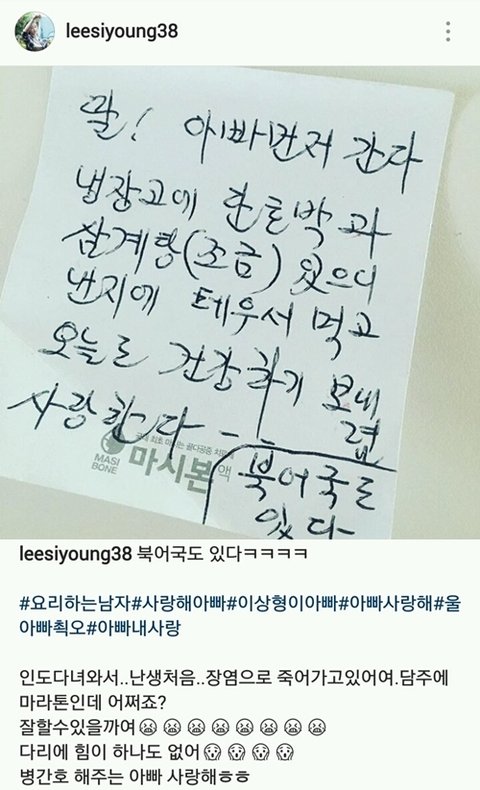 leesiyoung38
딸! 아빠먼저 간다
냉장고에 한토막 과
삼계탕(조금) 있으니
렌지에 데우서 먹고
오늘도 건강하기 보내
렴
사랑한다 --
북어국도
있다
MASI
BONE
마시본액
leesiyoung38 북어국도 있다ㅋㅋㅋㅋ
#요리하는남자#사랑해아빠#이상형이아빠#아빠사랑해#울
아빠최오#아빠내사랑
인도다녀와서..난생처음..장염으로 죽어가고있어여.담주에
마라톤인데 어쩌죠?
잘할수있을까여😫😫😫😫😫😫😫😫
다리에 힘이 하나도 없어😱😱😱😱
병간호 해주는 아빠 사랑해ㅎㅎ